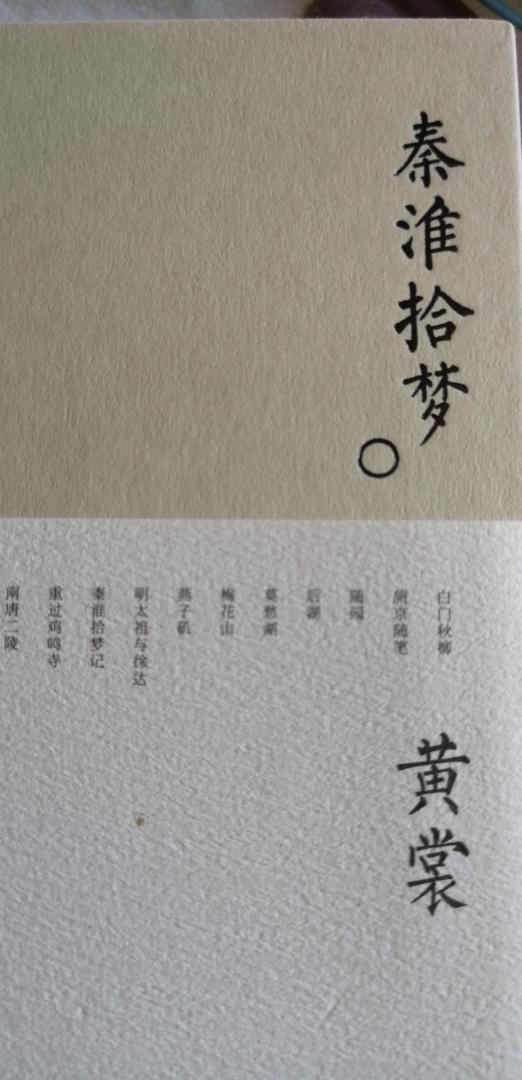 秦淮拾梦
黄裳
白门秋柳
旅京随笔
随园
后湖
莫愁湖
梅花山
燕子矶
明太祖与徐达
秦淮拾梦记
重过鸡鸣寺
南唐二陵